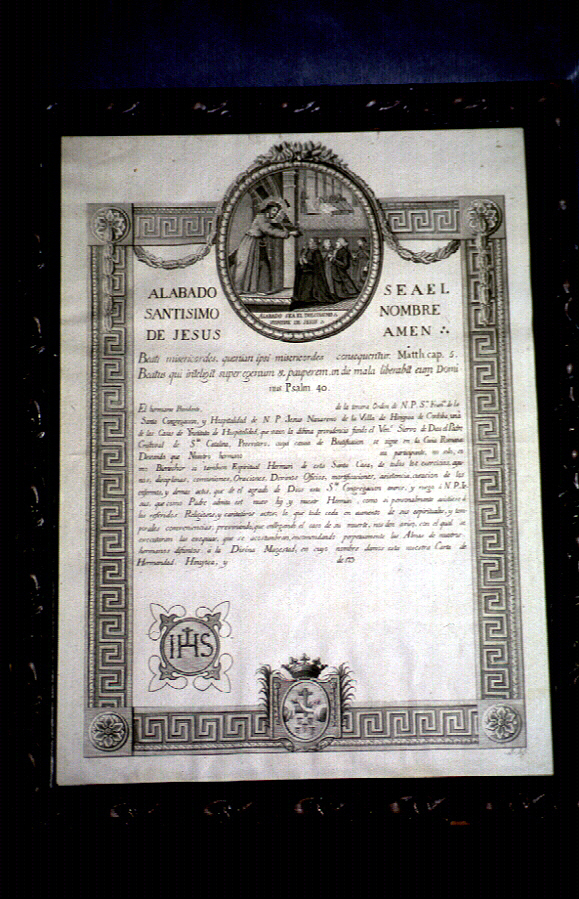 ALABADO SEA EL
SANTISIMO NOMBRE
DE JESUS AMEN
ALABADO SEA EL SANTISIMO
NOMBRE DE JESUS
Beati misericordes, quoniam ipsi misericordes consequentur. Matth cap. 5.
Beatus qui intelligit super egenum & pauperem, in die mala liberabit eum Domi
nus Psalm 40.
El hermano Presidente, de la tercera Orden de N. P. Sn. de la
Santa Congregacion, y Hospitalidad de N. P. Jesus Nazareno de la Villa de Hinojosa de Cordoba, una
de las Casas de Hospitalidad, que tuvo la divina providencia fundó el Ven. Siervo de Dios el Padre
Cristoval de Sta. Catalina, Presvitero, cuya causa de Beatificacion se sigue en la Curia Romana
Deseando que Nuestro hermano sea participante, no solo, co
mo Bienechor si tambien Espiritual Hermano de esta Santa Casa, de todos los exercicios, ayu
nos, disciplinas, comuniones, Oraciones, Divinos Oficios, mortificaciones, asistencia, curacion de los
enfermos, y demas actos, que de el agrado de Dios esta Sta. Congregacion exerce, y ruega a N. P. Je
sus, que como Padre admita est nuevo hijo, y nuestro Hermano, como si personalmente asistiera a
los referidos Religiosos, y caritativos actos; lo que todo ceda en aumento de sus espirituales, y tem
porales conveniencias; previniendo, que en llegando el caso de su muerte, nos den aviso, con el qual se
executaran las exequias, que se acostumbran, encomendando perpetuamente las Almas de nuestros
hermanos difuntos á la Divina Magestad, en cuyo nombre damos esta nuestra Carta de
Hermandad. Hinojosa, y de 179
IHS